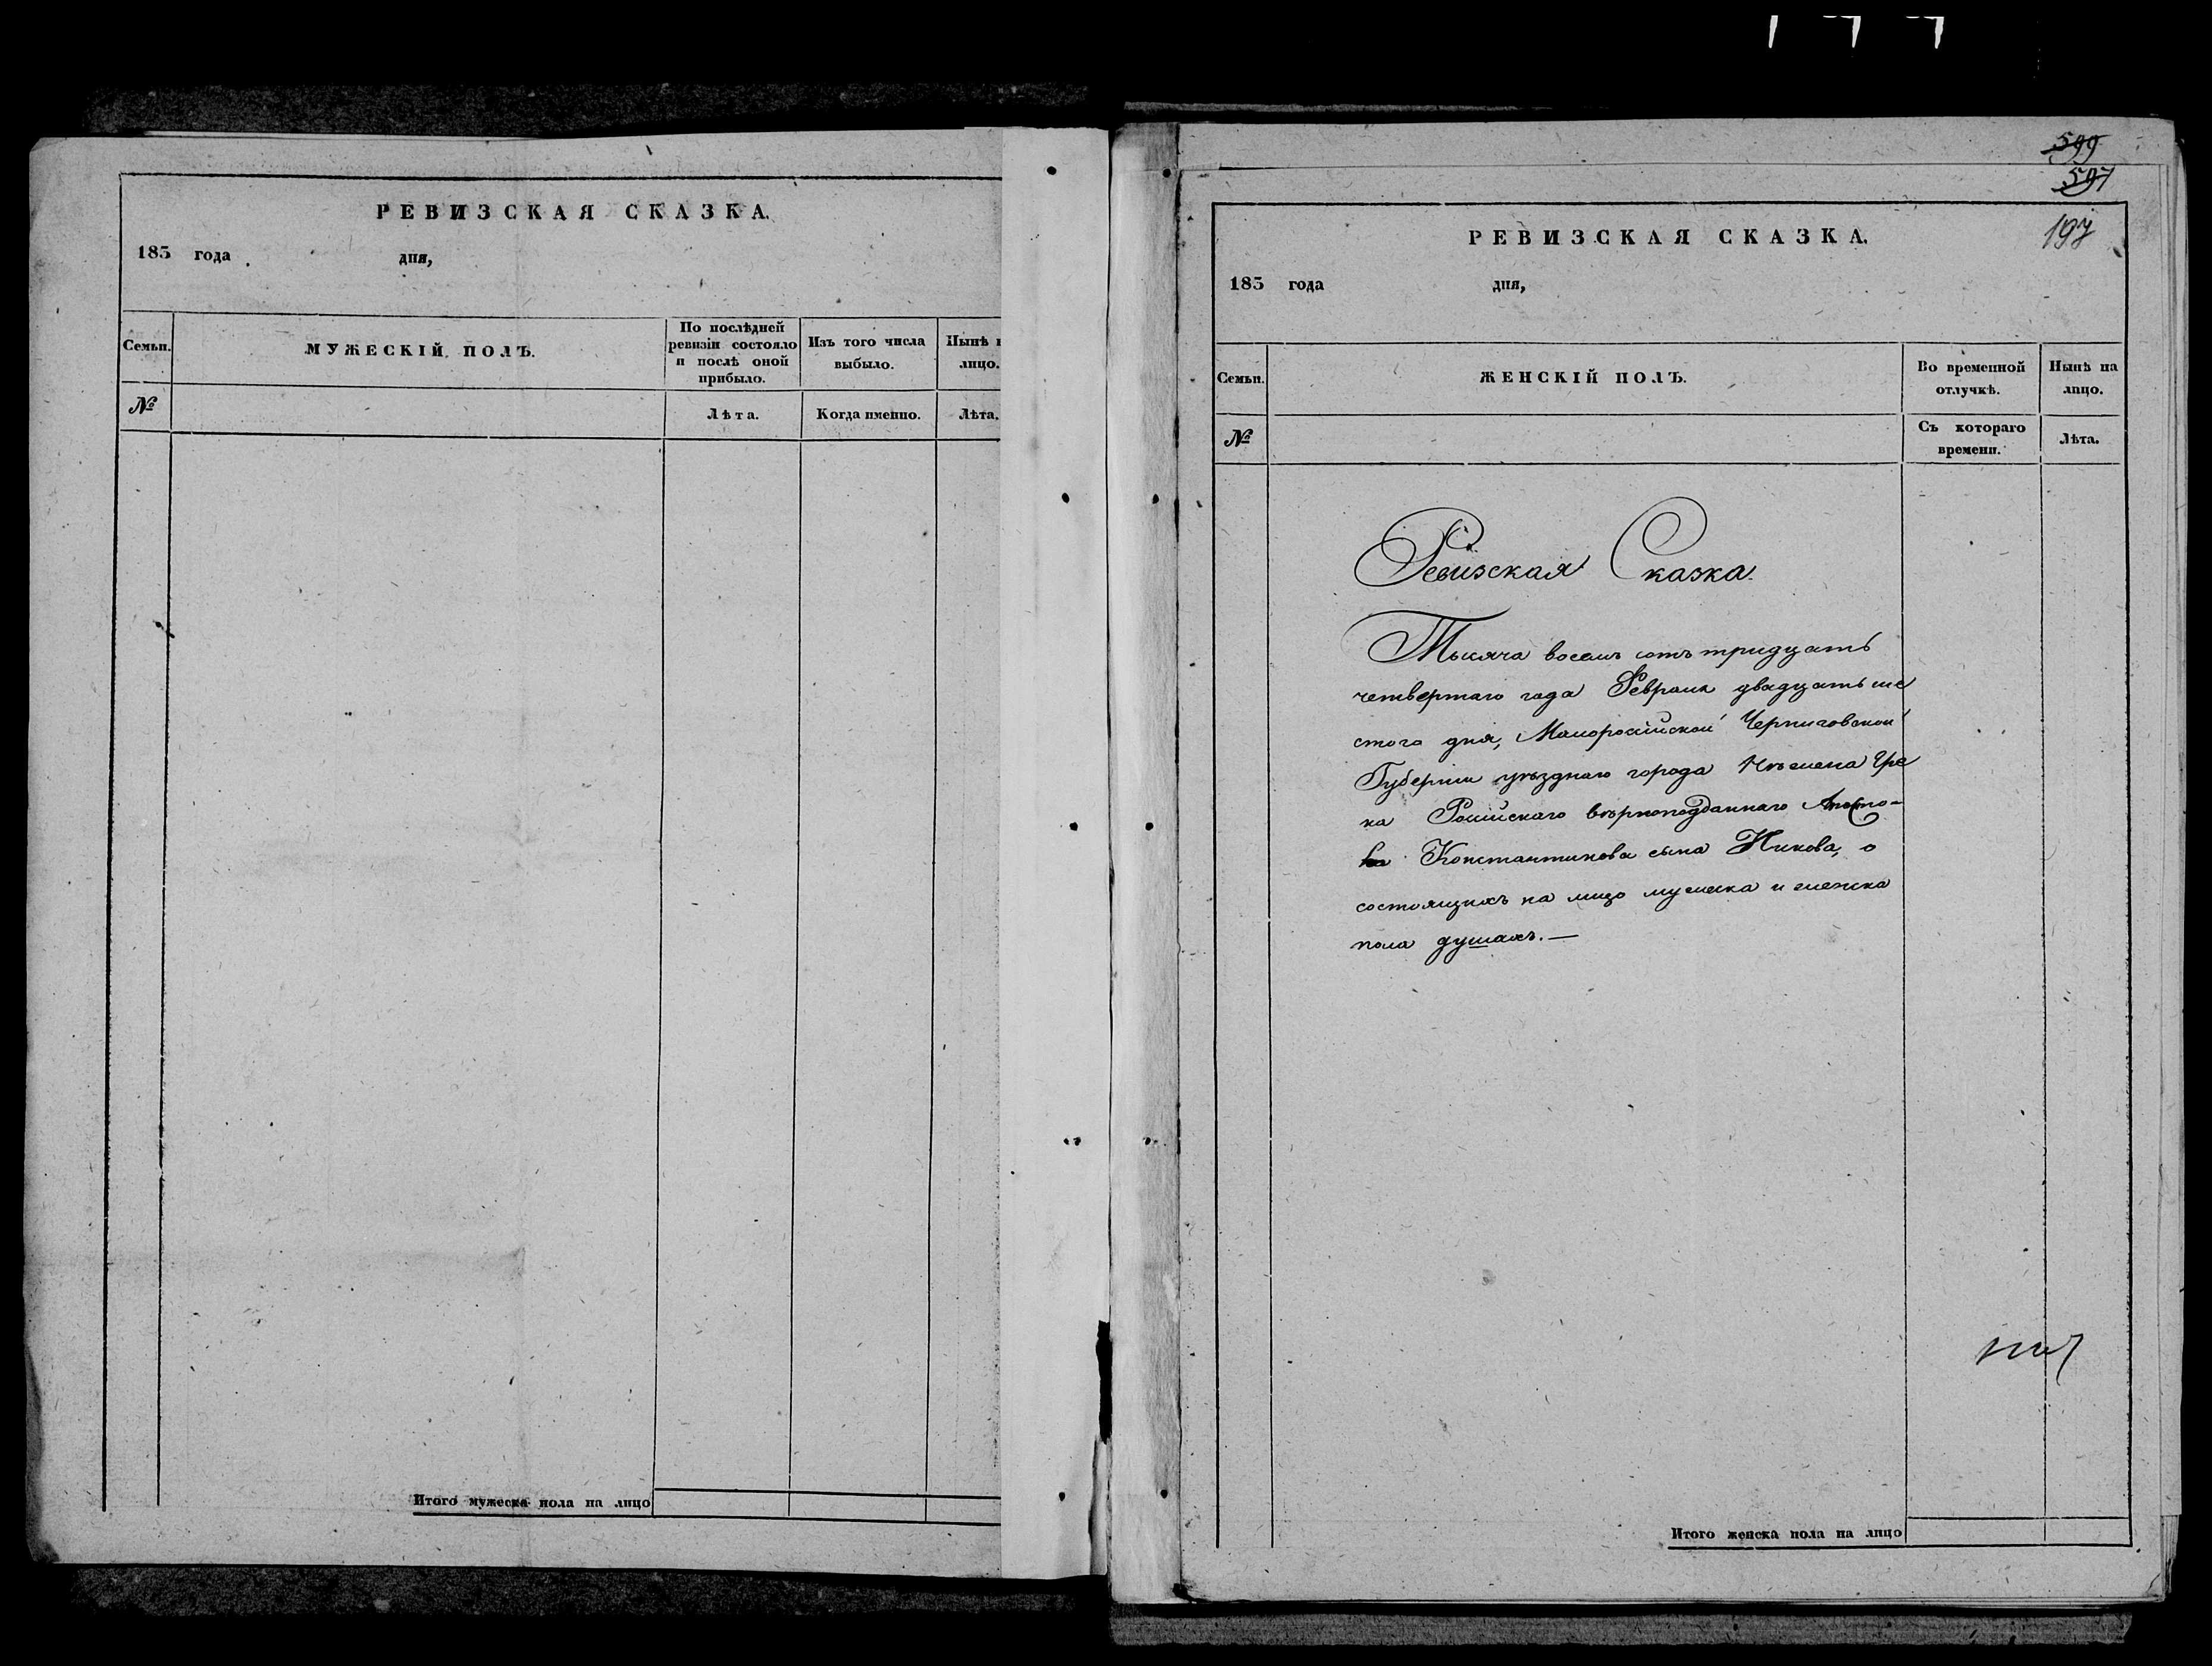 РЕВИЗСКАЯ СКАЗКА.
185 года дня,
Семьи.
МУЖЕСКІЙ ПОЛЪ.
По послѣдней
ревизіи состояло
и послѣ оной
прибыло.
Изъ того числа
выбыло.
Нынѣ
лицо.
№
Лѣта.
Когда именно.
Лѣта.
Итого мужеска пола на лицо
599
597
197
РЕВИЗСКАЯ СКАЗКА.
185 года дня,
Семьи.
ЖЕНСКІЙ ПОЛЪ.
Во временной
отлучкѣ.
Нынѣ на
лицо.
№
Съ котораго
времени.
Лѣта.
Ревизская Сказка.
Тысяча восемь сотъ тридцать
четвертаго года Февраля двадцать ше
стого дня, Малоросійской Черниговской
Губерніи уѣзднаго города Нѣжена Гре
ка Росийскаго вѣрноподданнаго Апосто-
ла Константинова сына Никова, о
состоящихъ на лицо мужеска и женска
пола душахъ.—
Итого женска пола на лицо